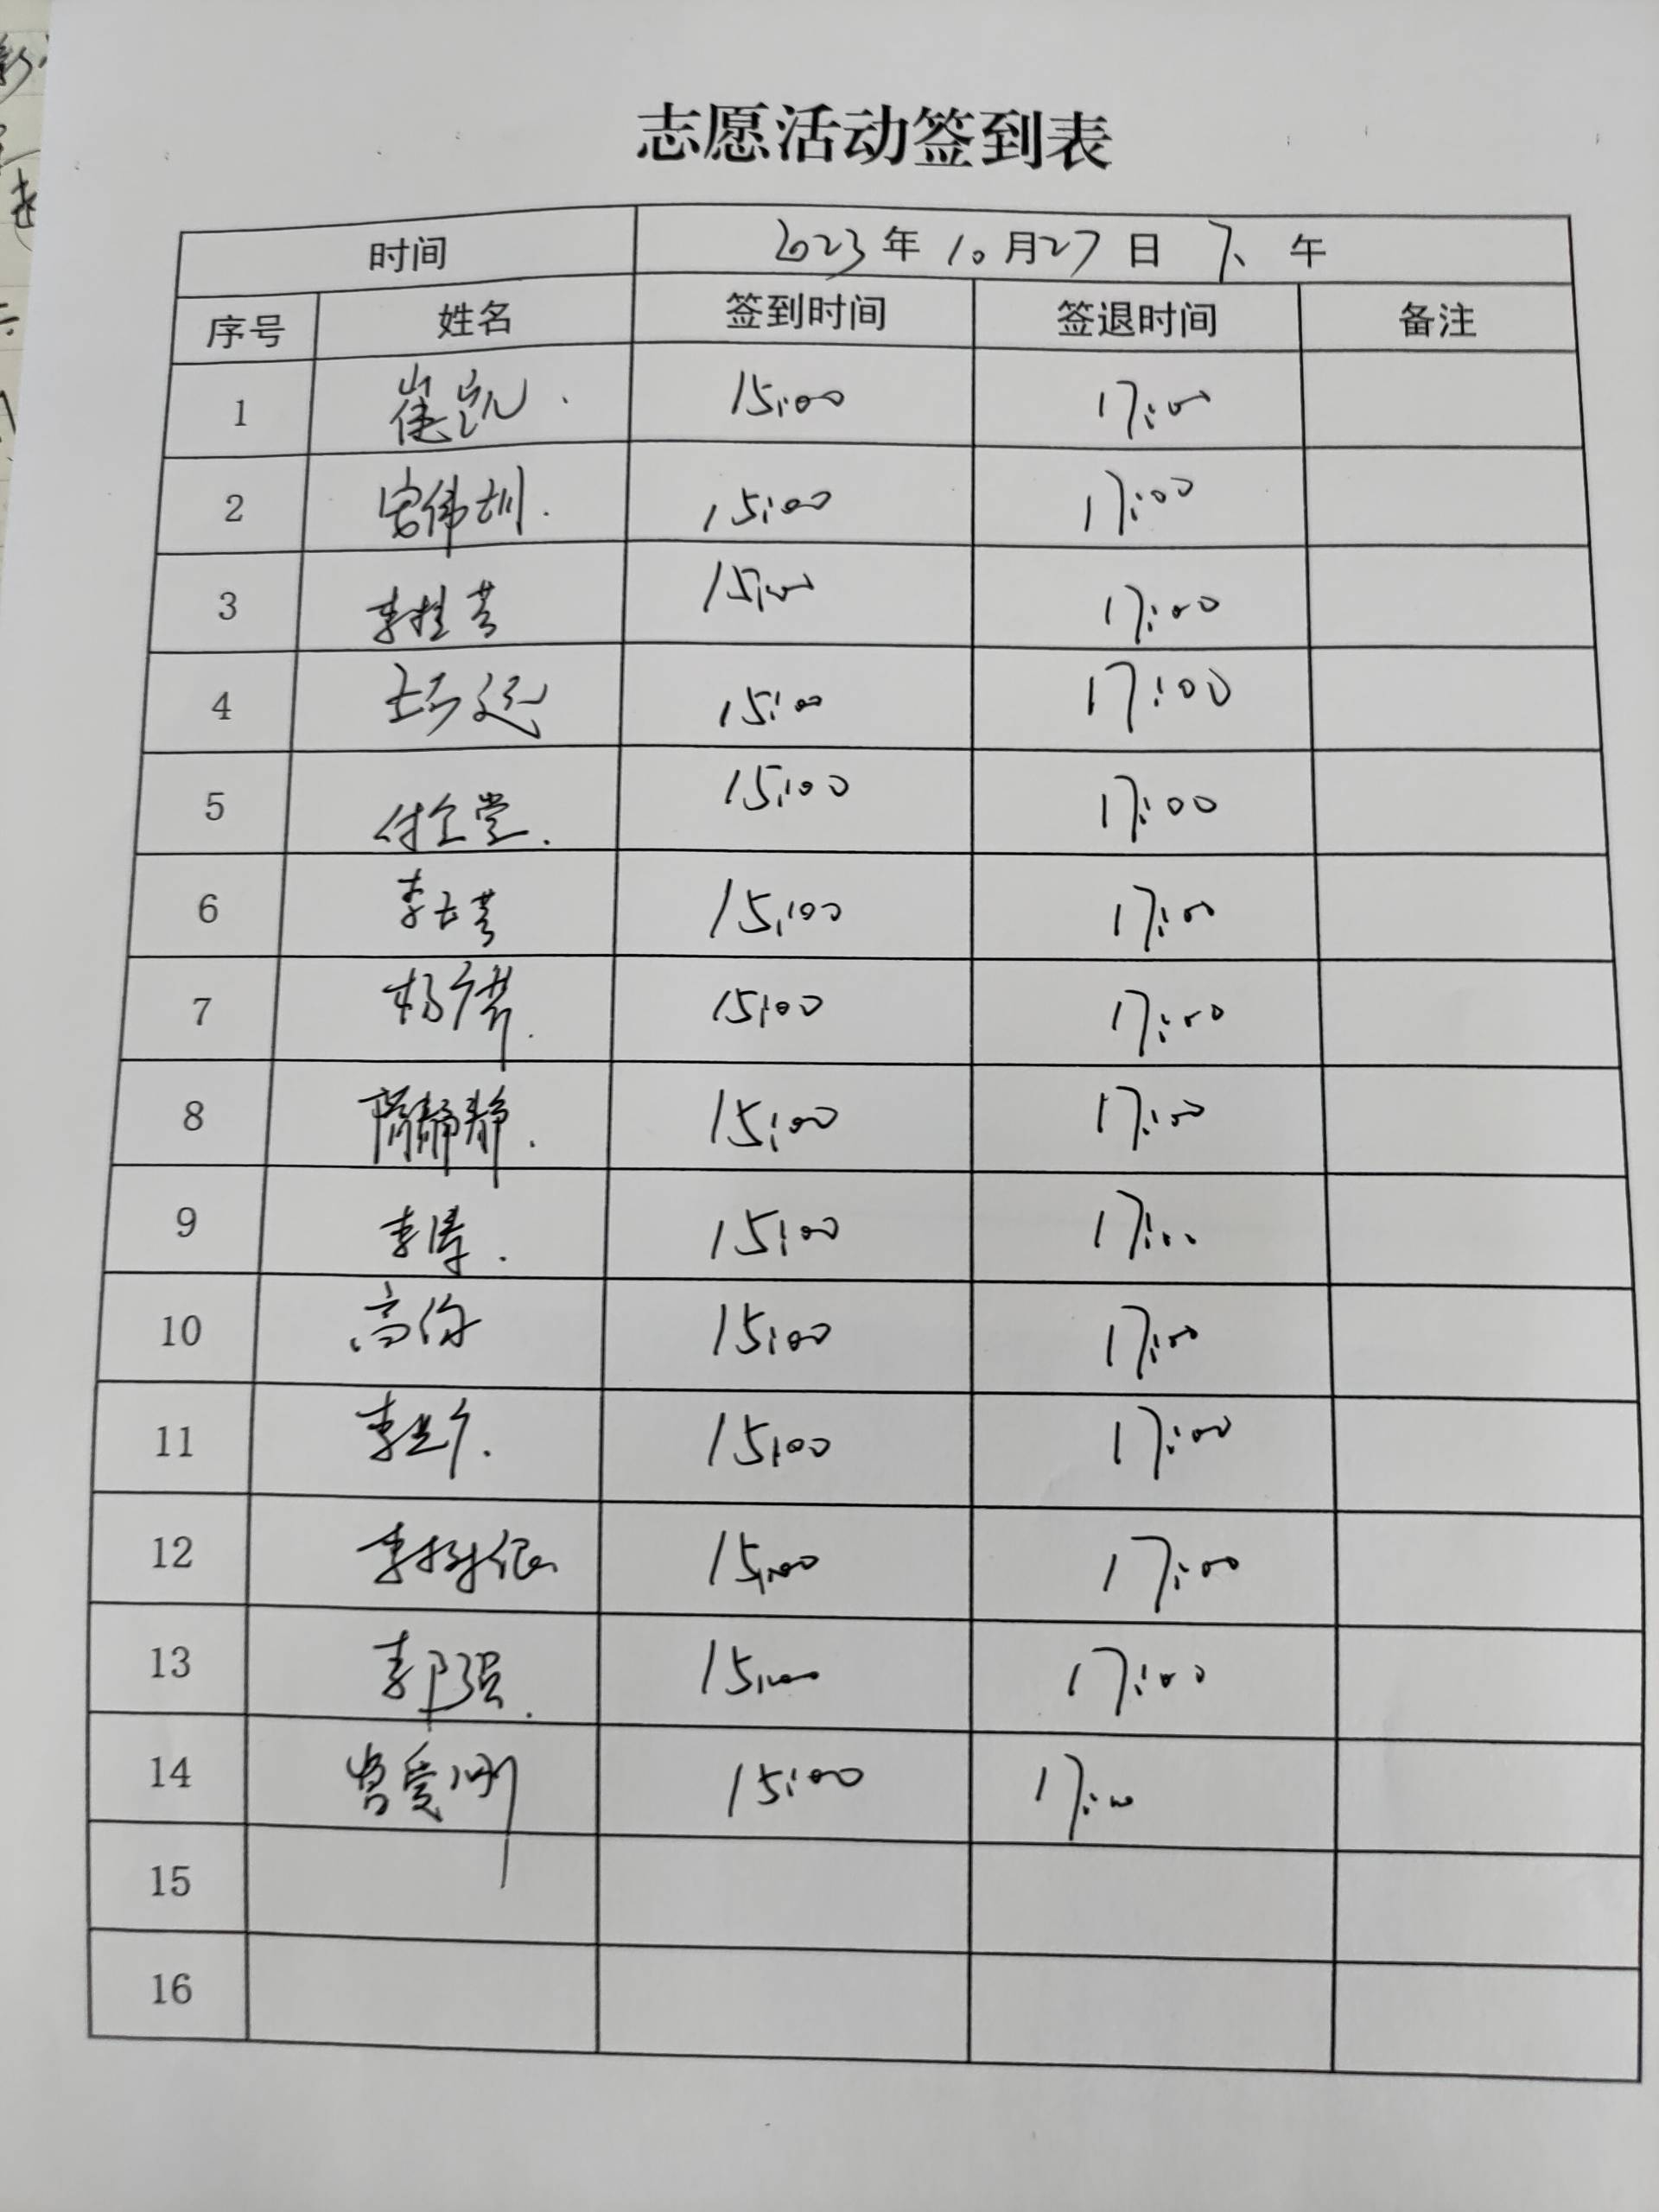 志愿活动签到表
时间 2023年10月27日 下午
序号 姓名 签到时间 签退时间 备注
1 崔凯 15:00 17:00
2 宋伟圳 15:00 17:00
3 李桂芳 15:00 17:00
4 15:00 17:00
5 付全堂 15:00 17:00
6 李玉芳 15:00 17:00
7 杨 15:00 17:00
8 隋静静 15:00 17:00
9 李涛 15:00 17:00
10 高 15:00 17:00
11 李 15:00 17:00
12 李树银 15:00 17:00
13 李卫强 15:00 17:00
14 曾爱刚 15:00 17:00
15
16